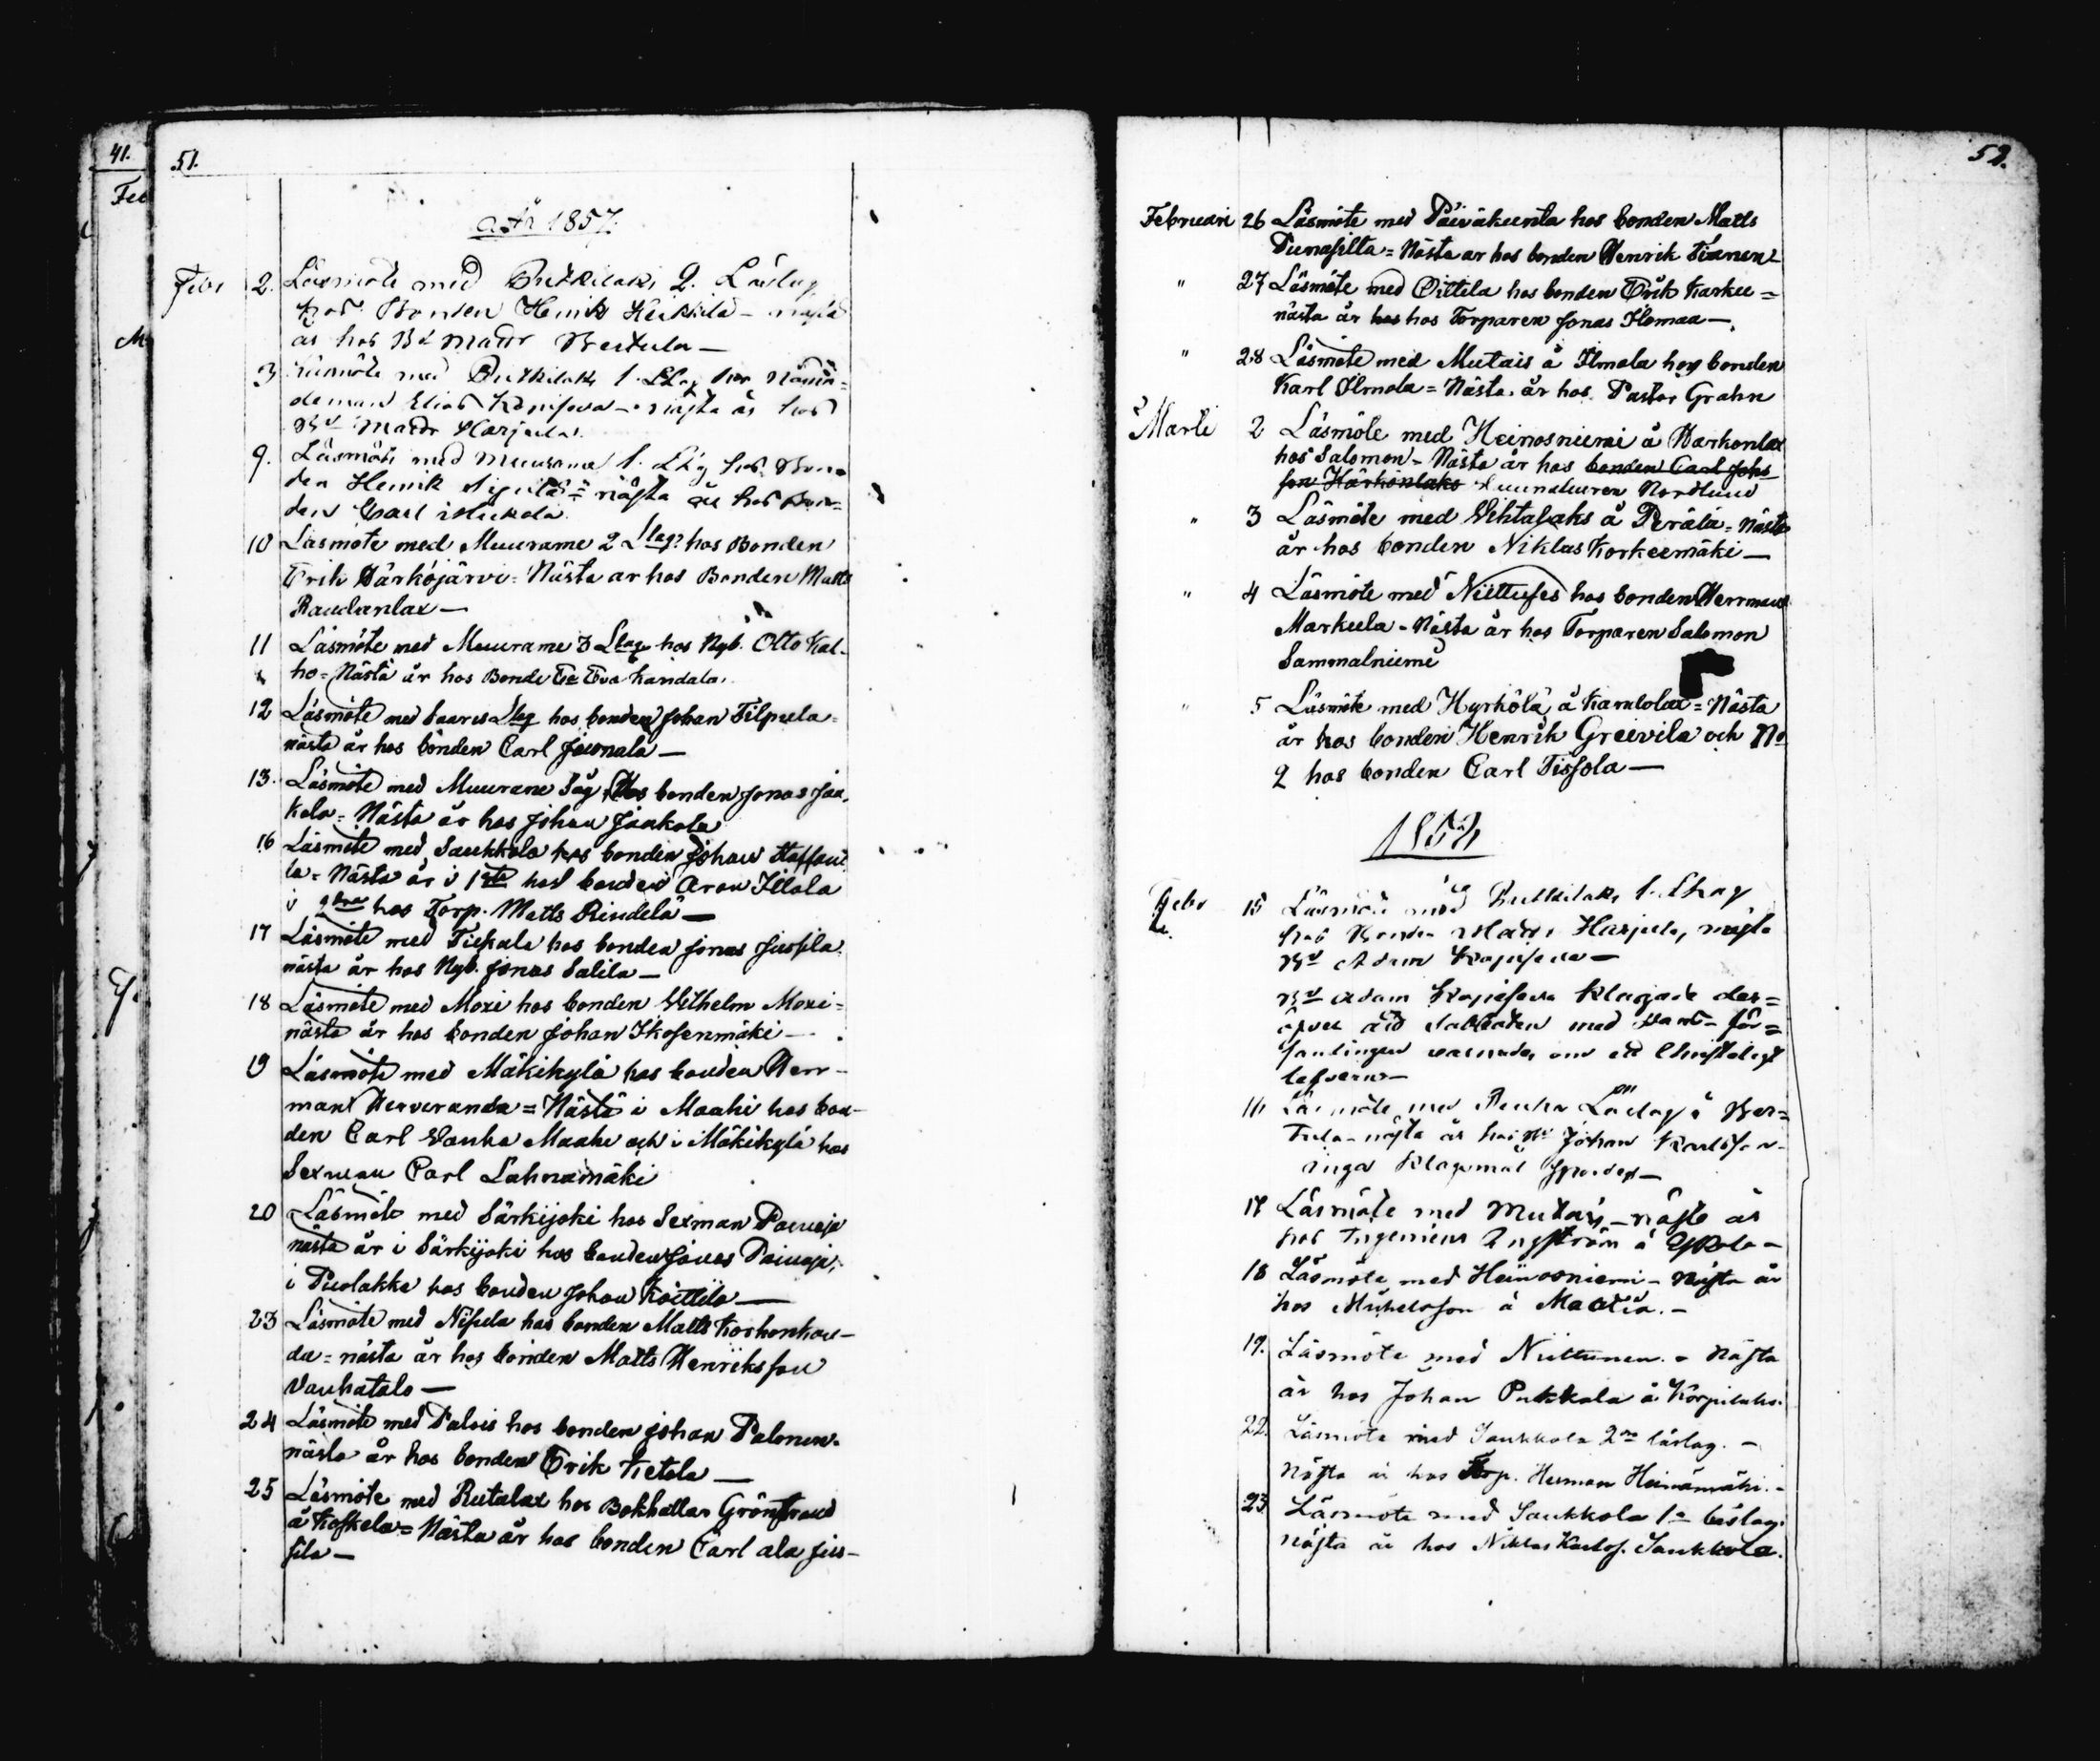 41.
Feb
51.
År 1857.
Febr 2. Läsmöte med Putkilaks 2. Läslag
hos Bonden Henrik Heikkilä – nästa
år hos Bd Matts Wertula –
3 Läsmöte med Putkilaks 1. LLag hos Nämn=
deman Elias – nästa år hos
Bd Matts Harjula.
9. Läsmöte med Muurame 1. LLag hos Bon=
den Henrik = nästa år hos Bon=
den Carl
10 Läsmöte med Muurame 2 Llag hos Bonden
Erik Särkijärvi = Nästa ar hos Bonden Matts
Raudanlax –
11 Läsmöte med Muurame 3 Llag hos Nyb. Otto Kal-
ho = Nästa år hos Bonde Eva Kandala.
12 Läsmöte med Saaris Llag hos bonden Johan Tilpula =
nästa år hos bonden Carl Jounala –
13. Läsmöte med Muurame Såg hos bonden Jonas Jaa-
kola = Nästa år hos Johan Jaakola
16 Läsmöte med Saukkola hos bonden Johan Staffani
la = Nästa år i 1sta hos bonden Aron Illola
i 2dra hos Torp. Matts Rindelä –
17 Läsmöte med Tiekala hos bonden Jonas Jussila
nästa år hos Nyb. Jonas Salila –
18 Läsmöte med Moxi hos bonden Wilhelm Moxi =
nästa år hos bonden Johan Ikosenmäki –
19 Läsmöte med Mäkikylä hos bonden Herr-
man Herveranda = Nästa i Maahi hos bon-
den Carl Vanha Maahi och i Mäkikylä hos
Sexman Carl Lahnamäki
20 Läsmöte med Särkijoki hos Sexman
nästa år i Särkijoki hos bonden Jonas
i Puolakka hos bonden Johan Koittila –
23 Läsmöte med Nisula hos bonden Matts Korhonhau-
da = nästa år hos bonden Matts Henriksson
Vanhatalo –
24 Läsmöte med Palais hos bonden Johan Palonen =
nästa år hos bonden Erik Kietala –
25 Läsmöte med Rutalax hos Bokhållar Grönstrand
å Koskela = Nästa år hos bonden Carl ala Jus-
sila –
52.
Februari 26 Läsmöte med Päiväkunta hos bonden Matts
Punasilta = Nästa ar hos bonden Henrik Tianen –
" 27 Läsmöte med Oittila hos bonden Erik Karkee =
nästa år hos hos Torparen Jonas Homaa –
" 28 Läsmöte med Mutais å Ilmola hos bonden
Karl Ilmola = Nästa år hos Pastor Grahn
Marti 2 Läsmöte med Heinosniemi å Harkonlax
hos Salomon – Nästa år hos bonden Carl Johs
son Härkönlaks Nordlund
" 3 Läsmöte med Vehtasaks å Perälä = Nästa
år hos bonden Niklas Korkeemäki –
" 4 Läsmöte med Niittuses hos bonden Herrman
Markula – Nästa år hos Torparen Salomon
Sammalniemi
" 5 Läsmöte med Hyrkölä å Kandolax = Nästa
år hos bonden Henrik Greivila och No
2 hos bonden Carl Tissola –
1858
Febr 15 Läsmöte med Putkilaks 1. Lhag
hos Bonden Matts Harjula, nästa
Bd Adam
Bd Adam klagade der=
öfver
samlingen varnades om ett Christeligt
lefverne –
16 Läsmöte med Läslag å Wer=
tula – nästa år hos Bd Johan Karlsson –
inga klagomål spordes –
17 Läsmöte med Mutais – näste år
hos Ingenieur Angström å –
18 Läsmöte med Heinosniemi – Nästa år
hos Mickelsson å Maatia. –
19. Läsmöte med Niittunen. – Nästa
år hos Johan Pukkala å Korpilaks.
22. Läsmöte med Saukkola 2ra läslag. –
Nästa år hos Torp. Herman Heinämäki. –
23. Läsmöte med Saukkola 1a läslag.
nästa år hos Niklas Karlss. Saukkola.